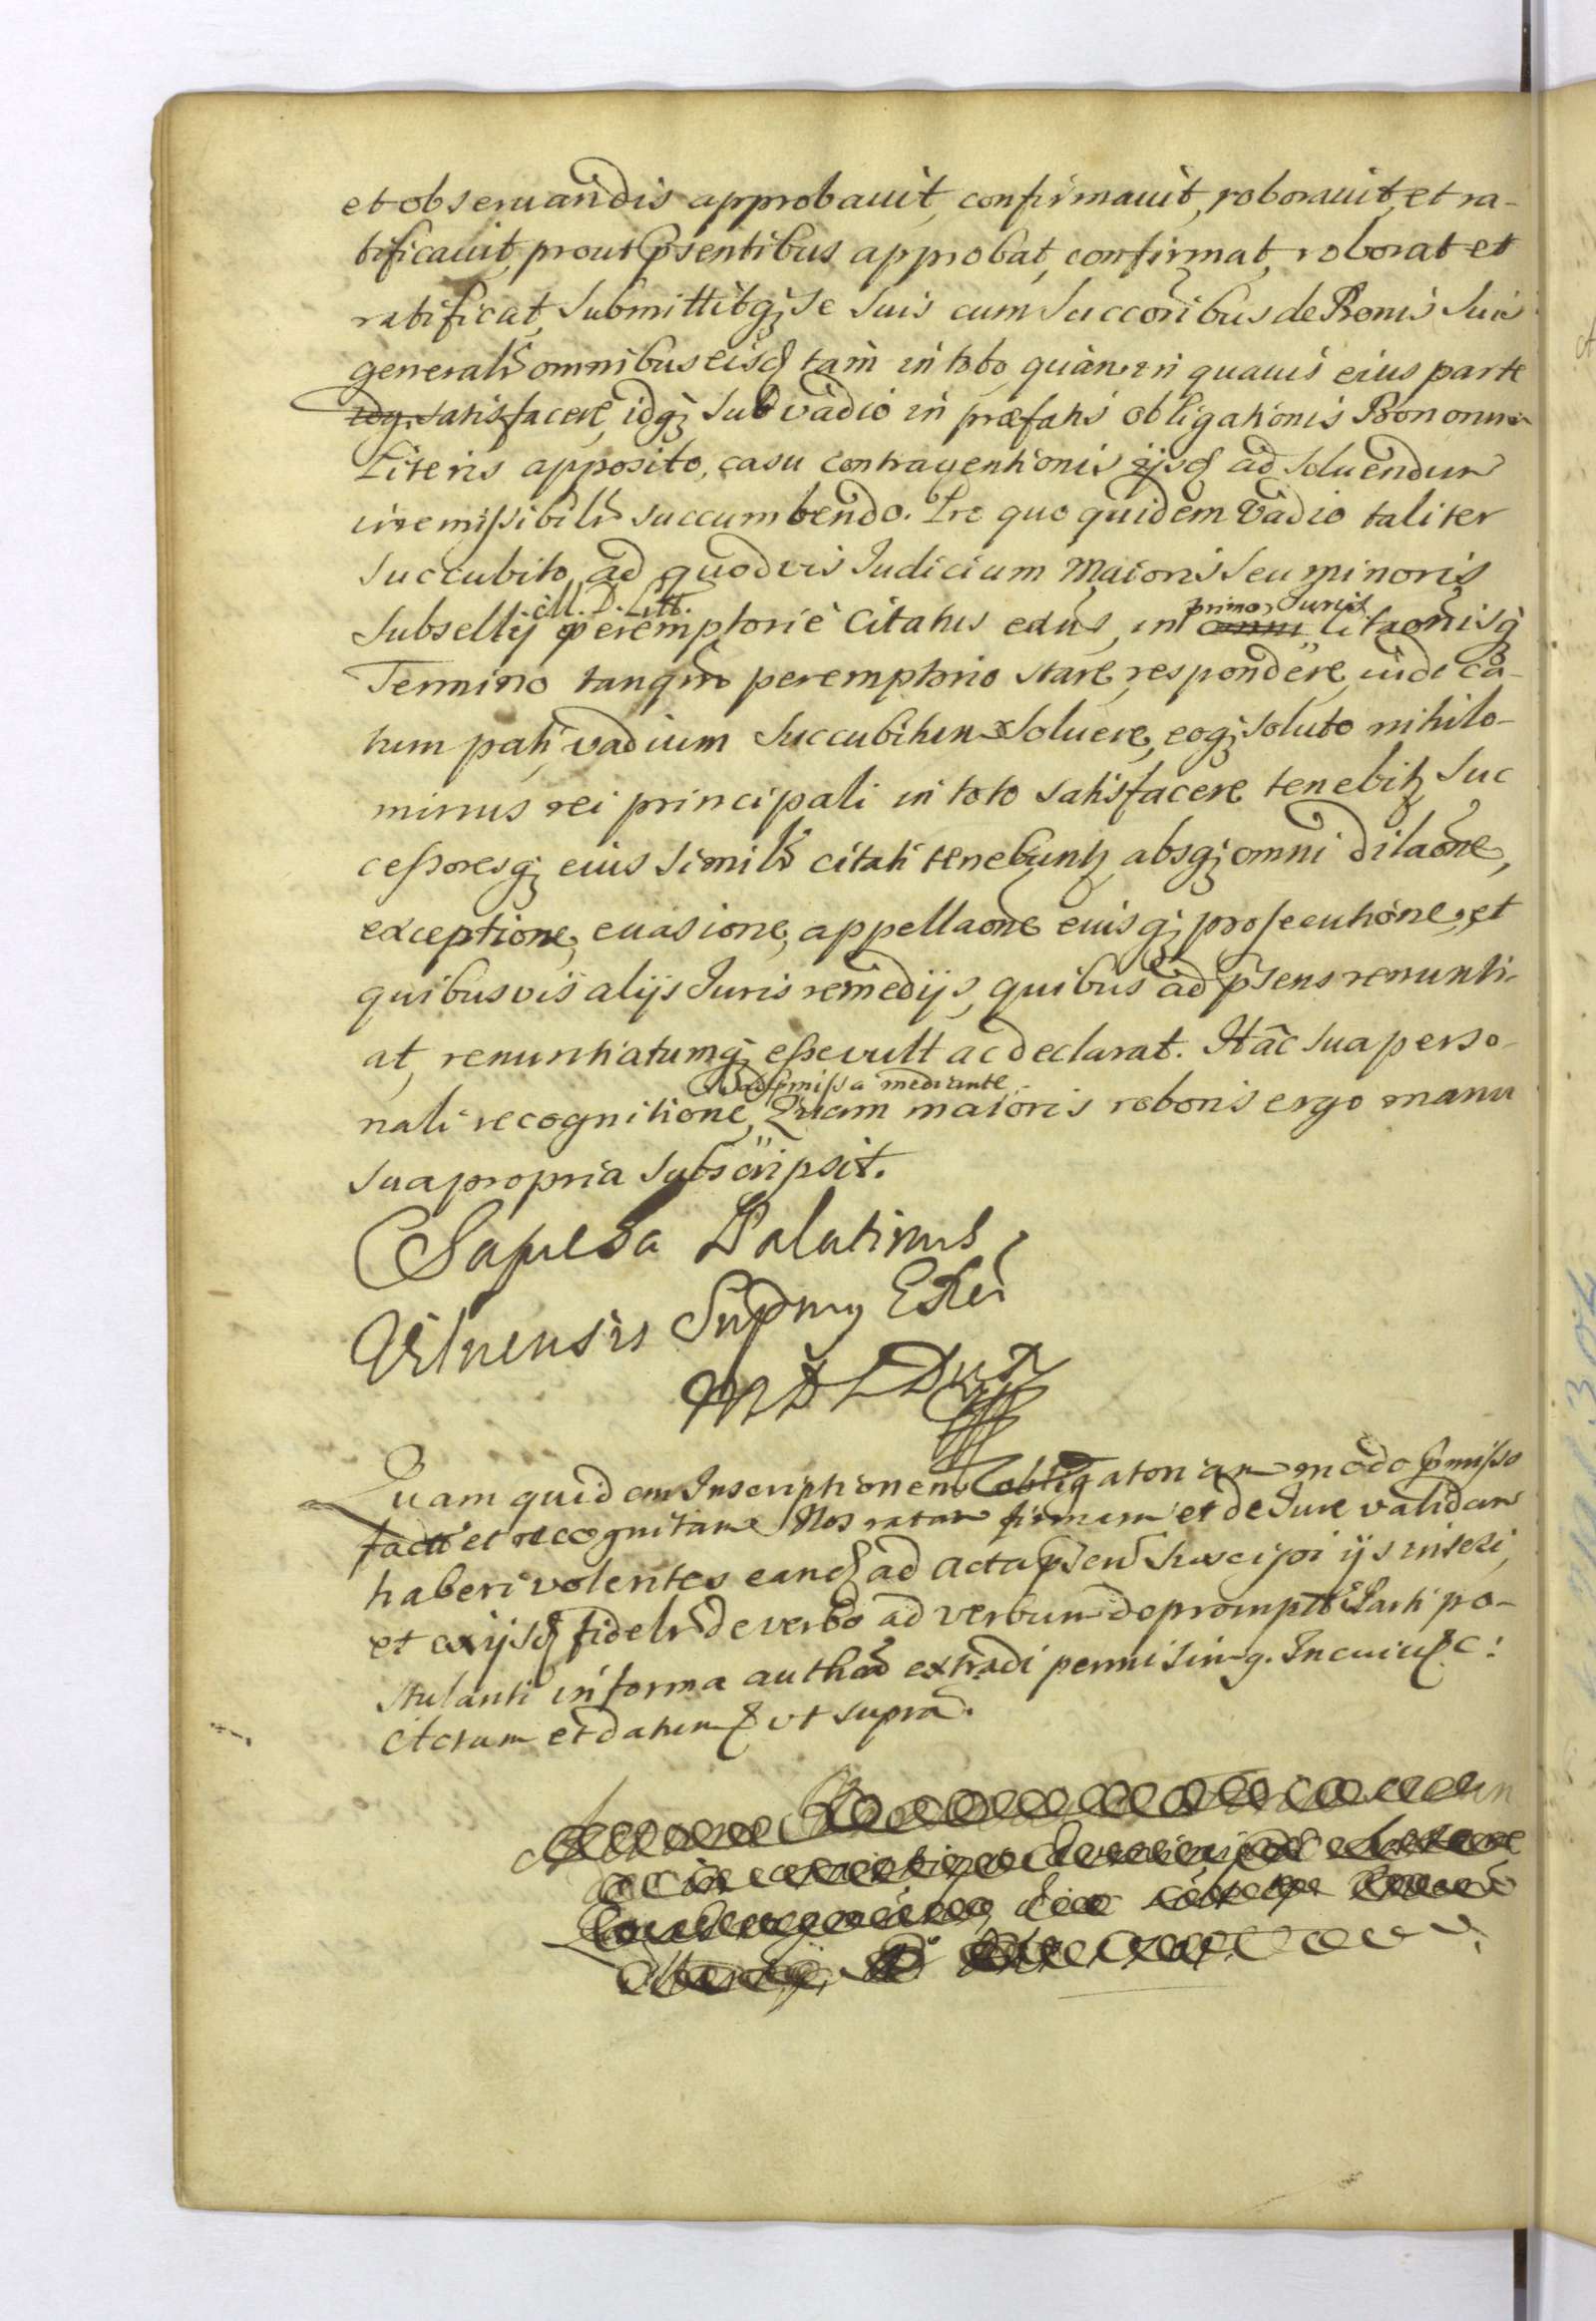 et obseruandis approbauit, confirmauit, roborauit, et ra-
tificauit, prout psentibus approbat, confirmat, roborat et
ratificat, Submittitq; se suis cum Succoribus de Bonis suis
generalr omnibus eisd tam in toto quàm in quauis eius parte
satisfacere, idq; sub vadio in præfatis obligationis Bonorum
Literis apposito, casu contrauentionis ijsd ad soluendum
irremissibilr succumbendo. Pro quo quidem Vadio taliter
succubito, ad quoduis Iudicium Maioris seu minoris
M. D. Litt. primo Juris
Subsellij peremptoriè Citatus edus, in omni litaonisq;
Termino tanqm peremptorio stare, respondere, iudica-
tum pati, vadium succubitum soluere, eoq; soluto nihilo-
minus rei principali in toto satisfacere tenebitr, Suc
cessoresq; eius similr citati tenebuntr, absq; omni dilaone,
exceptione, euasione, appellaone eiusq; prosecutione, et
quibusuis alijs Iuris remedijs, quibus ad psens renunti-
at, renuntiatumq; esse vult ac declarat. Hac sua perso-
pmissa mediante
nali recognitione, Quam maioris roboris ergo manu
sua propria subscripsit.
CSapieha Palatinus
Vilnensis Supmy Exer
M D L Dux
Quam quidem Inscriptionem obligatoriam modo pmisso
factã et recognitam Nos ratam firmam et de Iure validam
haberi volentes eand ad Acta psen suscipi ijs inseri,
et ex ijsd fidelr de verbo ad verbum depromptã Parti po-
stulanti in forma authen extradi permisimq. In cuius &c:
Actum et datum & vt supra.